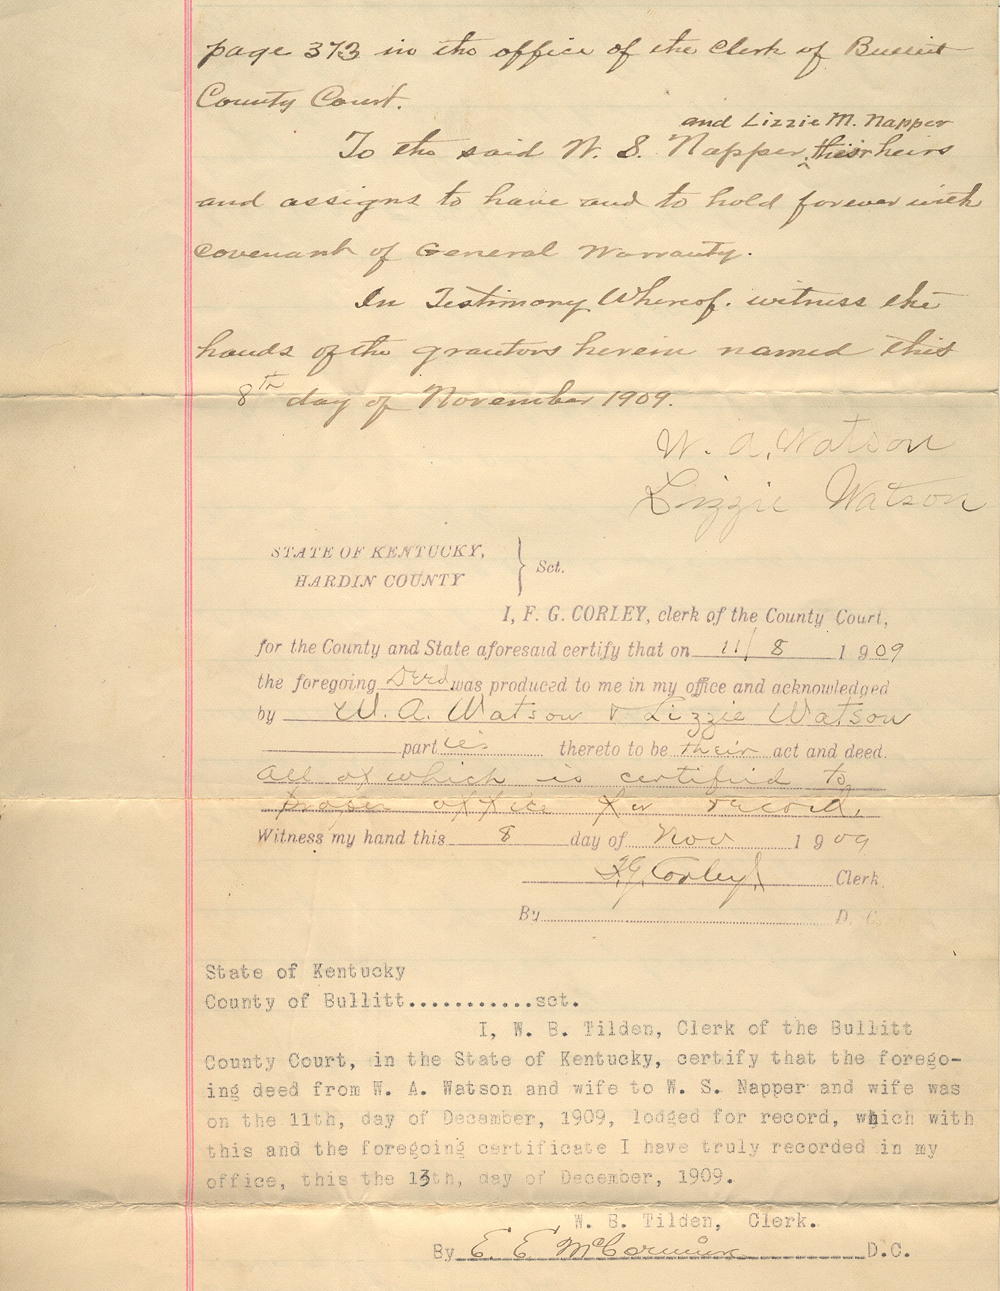 page 373 in the office of the Clerk of Bullitt
County Court.
and Lizzie M. Napper
To the said W. S. Napper, ^ their heirs
and assigns to have and to hold forever with
covenant of General Warranty.
In Testimony Whereof. witness the
hands of the grantors herein named this
8th day of November 1909.
W. A. Watson
Lizzie Watson
STATE OF KENTUCKY,
HARDIN COUNTY } Sct.
I, F. G. CORLEY, clerk of the County Court,
for the County and State aforesaid certify that on 11/8 1909
the foregoing Deed was produced to me in my office and acknowledged
by W. A. Watson & Lizzie Watson
parties thereto to be their act and deed.
all of which is certified to
proper office for record.
Witness my hand this 8 day of Nov 1909
F.G. Corley Clerk
By D. C.
State of Kentucky
County of Bullitt............sct.
I, W. B. Tilden, Clerk of the Bullitt
County Court, in the State of Kentucky, certify that the forego-
ing deed from W. A. Watson and wife to W. S. Napper and wife was
on the 11th, day of December, 1909, lodged for record, which with
this and the foregoing certificate I have truly recorded in my
office, this the 13th, day of December, 1909.
W. B. Tilden, Clerk.
By E. E. McCormick D.C.